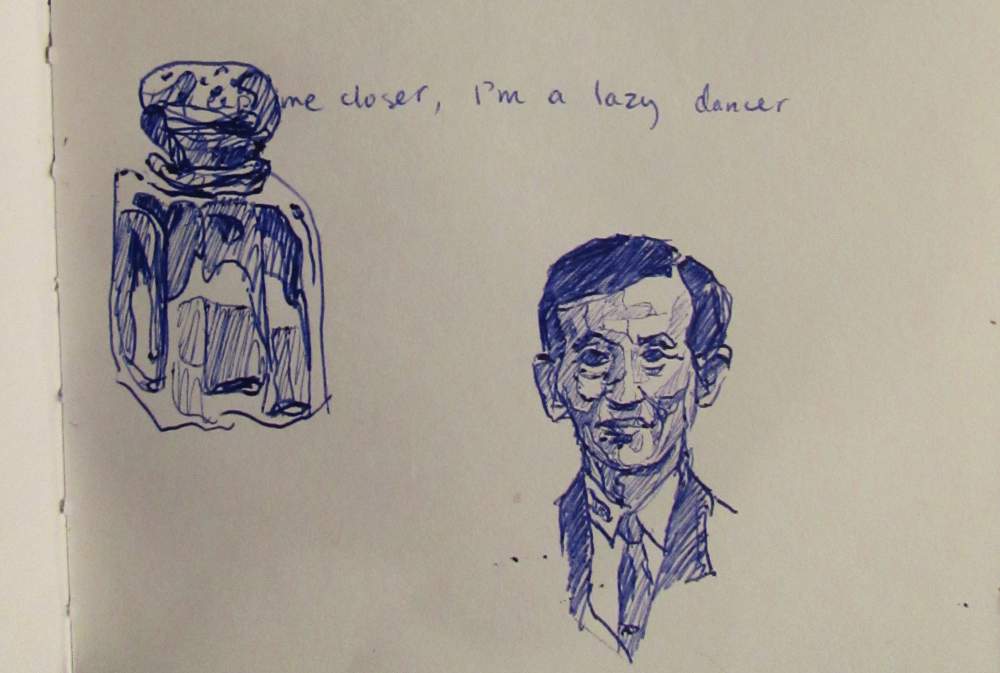 me closer, I'm a lazy dancer